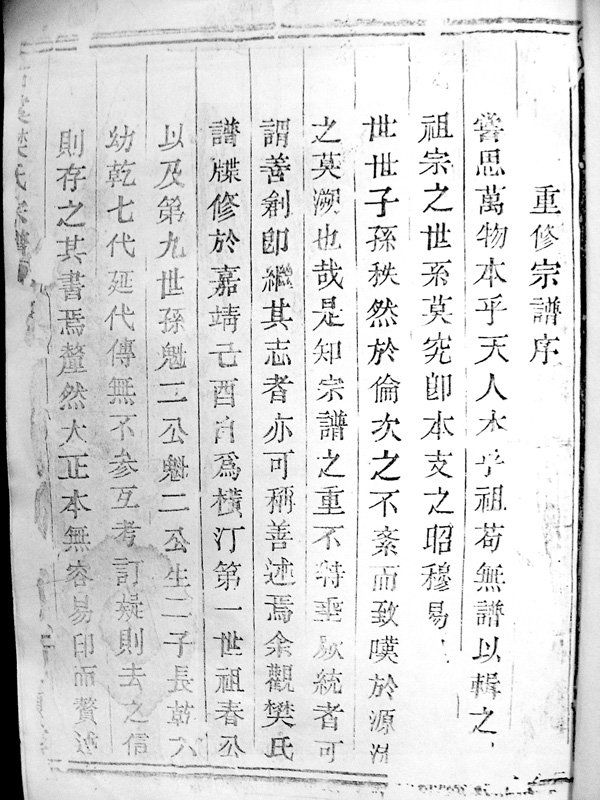 重修宗譜序
嘗思萬物本乎天人本乎祖苟無譜以輯之
祖宗之世系莫究卽本支之昭穆易
世世子孫秩然於倫次之不紊而致嘆於源
之莫溯也哉是知宗譜之重不特垂統者可
謂善創卽繼其志者亦可稱善述焉余觀樊氏
譜牒修於嘉靖己酉自爲橫汀第一世祖春公
以及第九世孫魁二公魁二公生二子長乾六
幼乾七代延代傳無不參互考訂疑則去之信
則存之其書焉釐然大正本無容易印而贅述
樊氏宗譜